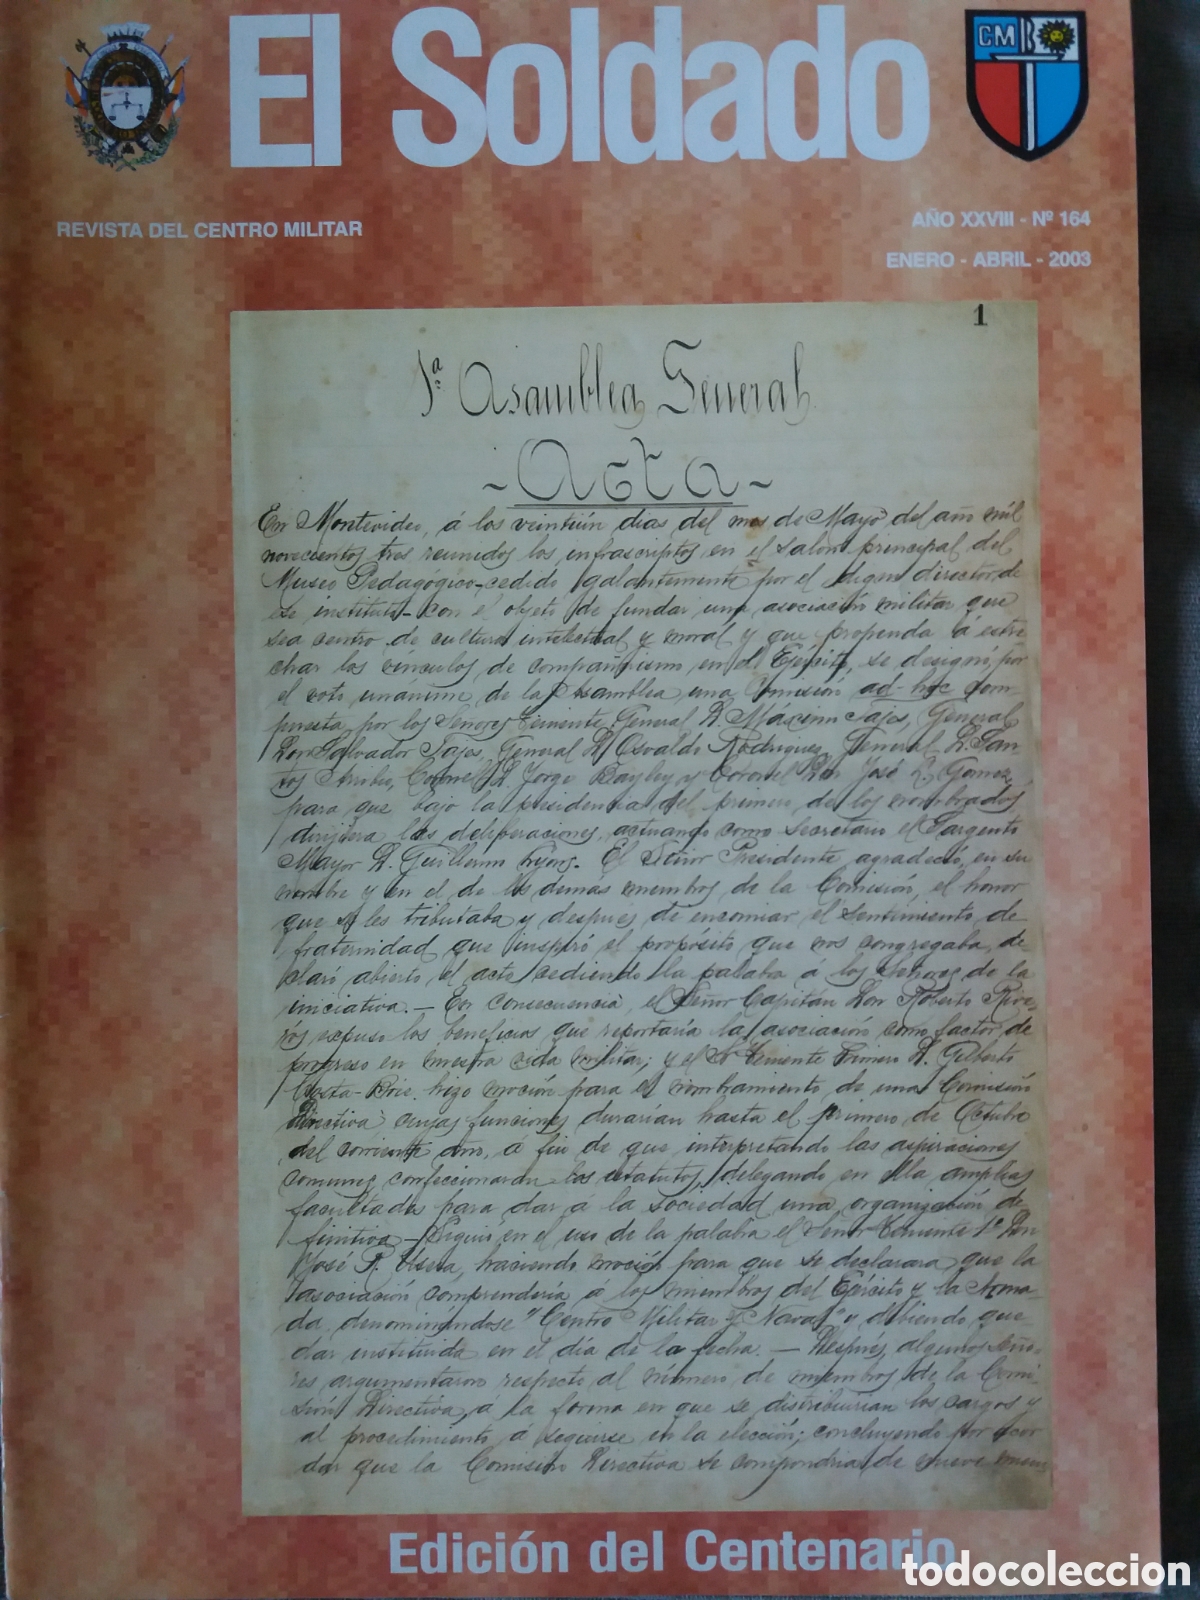 El Soldado
CM
REVISTA DEL CENTRO MILITAR
AÑO XXVIII - Nº 164
ENERO - ABRIL - 2003
1
1ª Asamblea General
- Acta -
En Montevideo, á los veintiún dias del mes de Mayo del año mil
novecientos tres reunidos los infrascriptos en el salon principal del
Museo Pedagógico-cedido galantemente por el digno director de
ese instituto- con el objeto de fundar una asociación militar que
sea centro de cultura intelectual y moral y que propenda á estre
char los vínculos de compañerismo en el Ejército, se designó, por
el voto unánime de la Asamblea una Comisión ad-hoc com-
puesta por los Señores Teniente General D. Máximo Tajes, General
Don Salvador Tajes, General D. Osvaldo Rodriguez, General D. San-
tos Arribio, Coronel D. Jorge Bayley y Coronel Don José L. Gomez,
para que bajo la presidencia del primero de los nombrados
dirijiera las deliberaciones, actuando como secretario el Sargento
Mayor D. Guillermo Lyons. El Señor Presidente agradeció, en su
nombre y en el de los demás miembros de la Comisión, el honor
que se les tributaba y después de encomiar el sentimiento de
fraternidad que inspiró el propósito que nos congregaba, de
claró abierto el acto cediendo la palabra á los Señores de la
iniciativa. - En consecuencia, el Señor Capitán Don Roberto Rive-
ros expuso los beneficios que reportaría la asociación como factor de
progreso en nuestra vida militar; y el Sr Teniente Primero D. Gilberto
Costa-Bris hizo moción para el nombramiento de una Comisión
Directiva cuyas funciones durarían hasta el primero de Octubre
del corriente año, á fin de que interpretando las aspiraciones
comunes confeccionaran los estatutos, delegando en ella amplias
facultades para dar á la sociedad una organización de
finitiva - Siguió en el uso de la palabra el Señor Teniente 1º Don
José R. Usera, haciendo moción para que se declarara que la
asociación comprendería á los miembros del Ejército y la Arma-
da, denominándose "Centro Militar y Naval" y debiendo que
dar instituida en el día de la fecha. - Después, algunos Seño-
res argumentaron respecto al número de miembros de la Comi-
sión Directiva, á la forma en que se distribuirían los cargos y
al procedimiento á seguirse en la elección; concluyendo por acor
dar que la Comisión Directiva se compondría de nueve
Edición del Centenario
todocoleccion